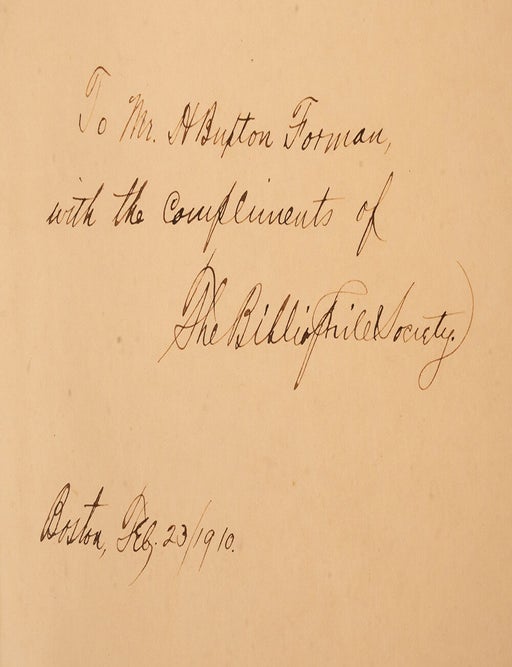 To Mr. H Buxton Forman,
with the compliments of
The Bibliophile Society.
Boston, Feb. 23/1910.